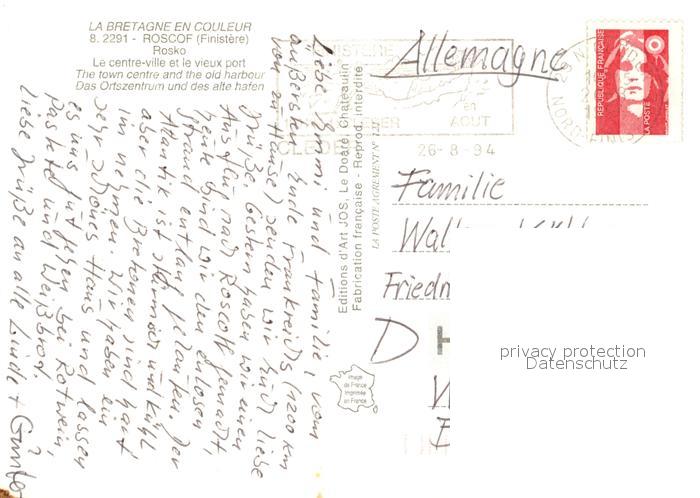 LA BRETAGNE EN COULEUR
8. 2291 - ROSCOF (Finistère)
Rosko
Le centre-ville et le vieux port
The town centre and the old harbour
Das Ortszentrum und des alte hafen
Liebe Emmi und Familie, vom
äußersten Ende Frankreichs (1200 km
von zu Hause) senden wir Euch liebe
Grüße. Gestern haben wir einen
Ausflug nach Roscoff gemacht,
heute sind wir den endlosen
Strand entlang gelaufen. Der
Atlantik ist stürmisch und kühl
aber die Bretonen sind hart
im nehmen. Wir haben ein
sehr schönes Haus und lassen
es uns gut gehen bei Rotwein,
Pastete und Weißbrot.
Liebe Grüße an alle Linde + Günter
Editions d'Art JOS, Le Doaré, Chateaulin
Fabrication française - Reprod. interdite
LA POSTE AGREMENT N°
Image
de France
Imprimée
en France
FINISTERE
en
AOUT
CLEDER
26-8-94
REPUBLIQUE FRANÇAISE
LA POSTE
NORD FINIS
Allemagne
Familie
Wal
Friedr
D
privacy protection
Datenschutz